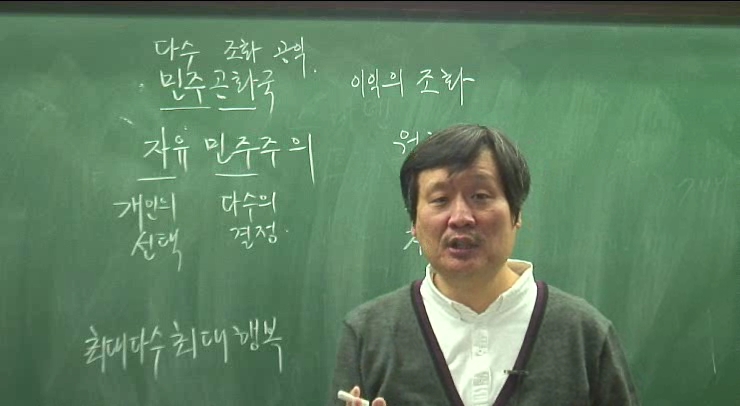 다수 조화 공익.
민주공화국 이익의 조화
자유 민주주의
개인의 다수의
선택 결정.
최대다수 최대 행복